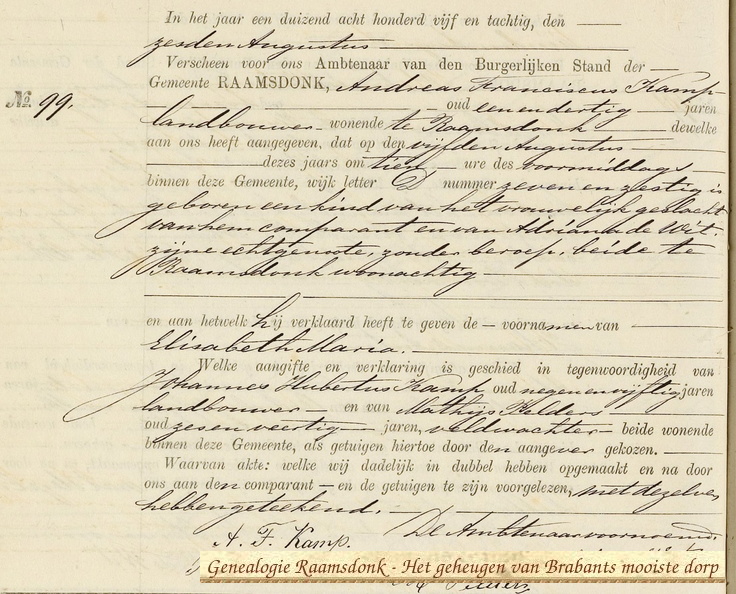 In het jaar een duizend acht honderd vijf en tachtig, den
zesden Augustus
Verscheen voor ons Ambtenaar van den Burgerlijken Stand der
Gemeente RAAMSDONK, Andreas Franciscus Kamp
No. 99.
oud eenendertig jaren
landbouwer wonende te Raamsdonk dewelke
aan ons heeft aangegeven, dat op den vijfden Augustus
dezes jaars om tien ure des voormiddags
binnen deze Gemeente, wijk letter D nummer zeven en zestig is
geboren een kind van het vrouwelijk geslacht
van hem comparant en van Adriana de Wit,
zijne echtgenoote, zonder beroep, beide te
Raamsdonk woonachtig
en aan hetwelk hij verklaard heeft te geven de voornamen van
Elisabeth Maria.
Welke aangifte en verklaring is geschied in tegenwoordigheid van
Johannes Hubertus Kamp oud negenenvijftig jaren
landbouwer en van Mathijs Kelders
oud zesenveertig jaren, veldwachter beide wonende
binnen deze Gemeente, als getuigen hiertoe door den aangever gekozen.
Waarvan akte: welke wij dadelijk in dubbel hebben opgemaakt en na door
ons aan den comparant en de getuigen te zijn voorgelezen, met dezelve
hebben geteekend.
A. F. Kamp. De Ambtenaar voornoemd.
Genealogie Raamsdonk - Het geheugen van Brabants mooiste dorp